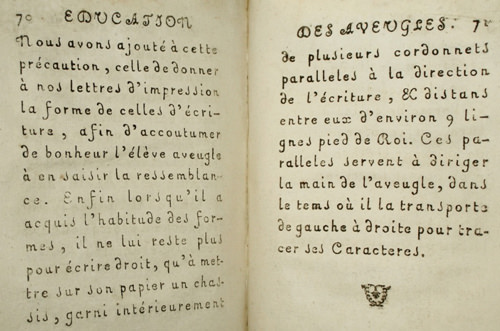 70 EDUCATION
Nous avons ajouté à cette
précaution, celle de donner
à nos lettres d'impression
la forme de celles d'écri-
ture, afin d'accoutumer
de bonheur l'élève aveugle
à en saisir la ressemblan-
ce. Enfin lorsqu'il a
acquis l'habitude des for-
mes, il ne lui reste plus
pour écrire droit, qu'à met-
tre sur son papier un chas-
sis, garni intérieurement
DES AVEUGLES. 71
de plusieurs cordonnets
paralleles à la direction
de l'écriture, & distans
entre eux d'environ 9 li-
gnes pied de Roi. Ces pa-
ralleles servent à diriger
la main de l'aveugle, dans
le tems où il la transporte
de gauche à droite pour tra-
cer ses Caracteres.